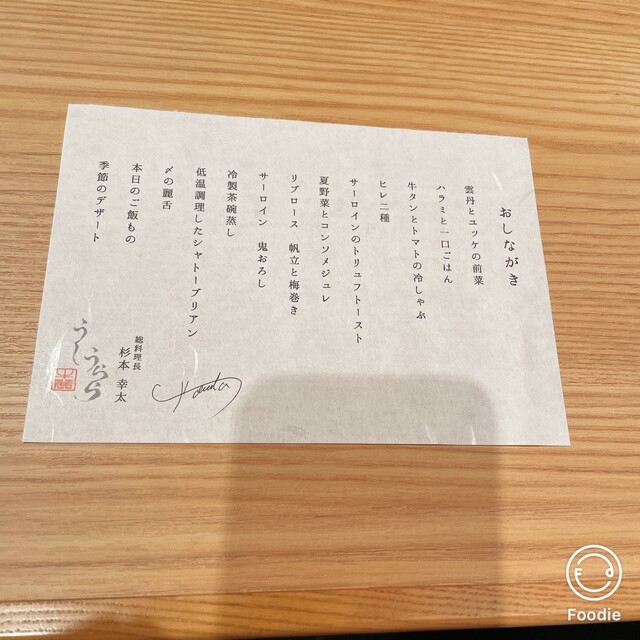 おしながき
雲丹とユッケの前菜
ハラミと一口ごはん
牛タンとトマトの冷しゃぶ
ヒレ二種
サーロインのトリュフトースト
夏野菜とコンソメジュレ
リブロース 帆立と梅巻き
サーロイン 鬼おろし
冷製茶碗蒸し
低温調理したシャトーブリアン
〆の麗舌
本日のご飯もの
季節のデザート
総料理長
杉本 幸太
うしうらら
Foodie